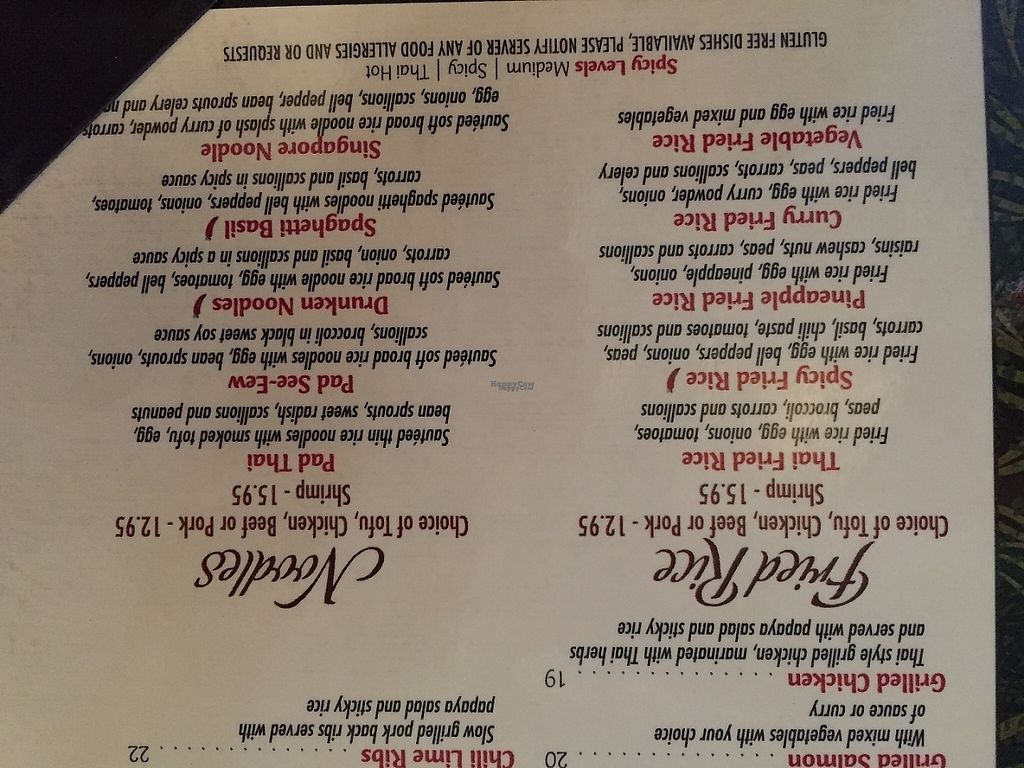 Grilled Salmon . . . . . . . . . . . . . . . . 20
With mixed vegetables with your choice
of sauce or curry
Grilled Chicken . . . . . . . . . . . . . . . 19
Thai style grilled chicken, marinated with Thai herbs
and served with papaya salad and sticky rice
Chili Lime Ribs . . . . . . . . . . . . . . . 22
Slow grilled pork back ribs served with
papaya salad and sticky rice
Fried Rice
Choice of Tofu, Chicken, Beef or Pork - 12.95
Shrimp - 15.95
Thai Fried Rice
Fried rice with egg, onions, tomatoes,
peas, broccoli, carrots and scallions
Spicy Fried Rice
Fried rice with egg, bell peppers, onions, peas,
carrots, basil, chili paste, tomatoes and scallions
Pineapple Fried Rice
Fried rice with egg, pineapple, onions,
raisins, cashew nuts, peas, carrots and scallions
Curry Fried Rice
Fried rice with egg, curry powder, onions,
bell peppers, peas, carrots, scallions and celery
Vegetable Fried Rice
Fried rice with egg and mixed vegetables
Noodles
Choice of Tofu, Chicken, Beef or Pork - 12.95
Shrimp - 15.95
Pad Thai
Sautéed thin rice noodles with smoked tofu, egg,
bean sprouts, sweet radish, scallions and peanuts
Pad See-Eew
Sautéed soft broad rice noodles with egg, bean sprouts, onions,
scallions, broccoli in black sweet soy sauce
Drunken Noodles
Sautéed soft broad rice noodle with egg, tomatoes, bell peppers,
carrots, onion, basil and scallions in a spicy sauce
Spaghetti Basil
Sautéed spaghetti noodles with bell peppers, onions, tomatoes,
carrots, basil and scallions in spicy sauce
Singapore Noodle
Sautéed soft broad rice noodle with splash of curry powder, carrots
egg, onions, scallions, bell pepper, bean sprouts and celery and
Spicy Levels Medium | Spicy | Thai Hot
GLUTEN FREE DISHES AVAILABLE, PLEASE NOTIFY SERVER OF ANY FOOD ALLERGIES AND OR REQUESTS
HappyCow